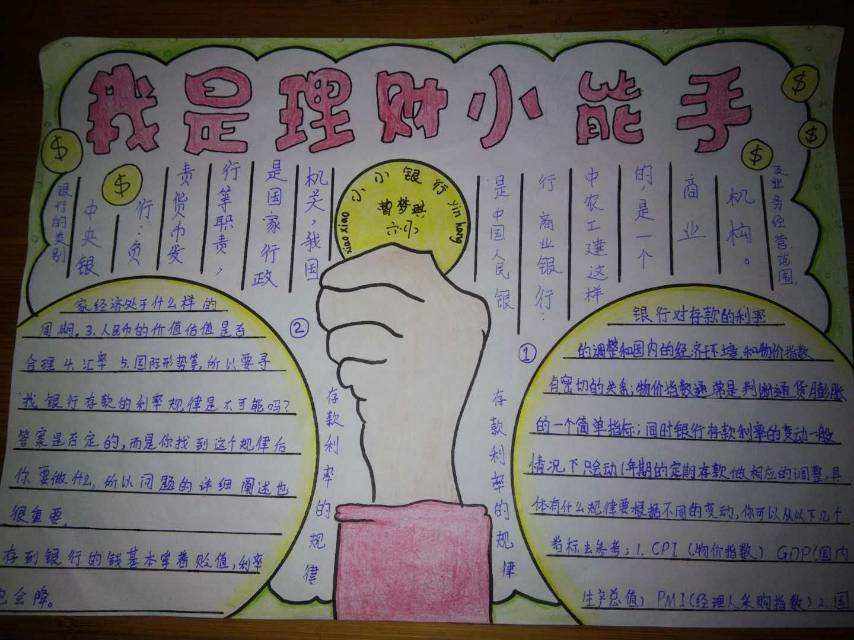 我是理财小能手
银行的类别
中央银
行:负
责货币发
行等职责,
是国家行政
机关,我国
是中国人民银
行 商业银行:
中农工建这样
的,是一个
商业
机构。
及业务经营范围
xiao xiao
小小银行
yin hang
$
$
$
$
$
①
存款利率的规律
银行对存款的利率
的调整和国内的经济环境和物价指数
有密切的关系;物价指数通常是判断通货膨胀
的一个简单指标;同时银行存款利率的变动一般
情况下只会动1年期的定期存款做相应的调整,具
体有什么规律要根据不同的变动,你可以从以下几个
指标去参考;1.CPI(物价指数)GDP(国内
生产总值)PMI(经理人采购指数)2.国
②
存款利率的规律
家经济处于什么样的
周期.3.人民币的价值估值是否
合理4.汇率5.国际形势等,所以要寻
找银行存款的利率规律是不可能吗?
答案是否定的,而是你找到这个规律后
你要做什么,所以问题的详细阐述也
很重要,
存到银行的钱基本穿着贬值,利率
也会降。